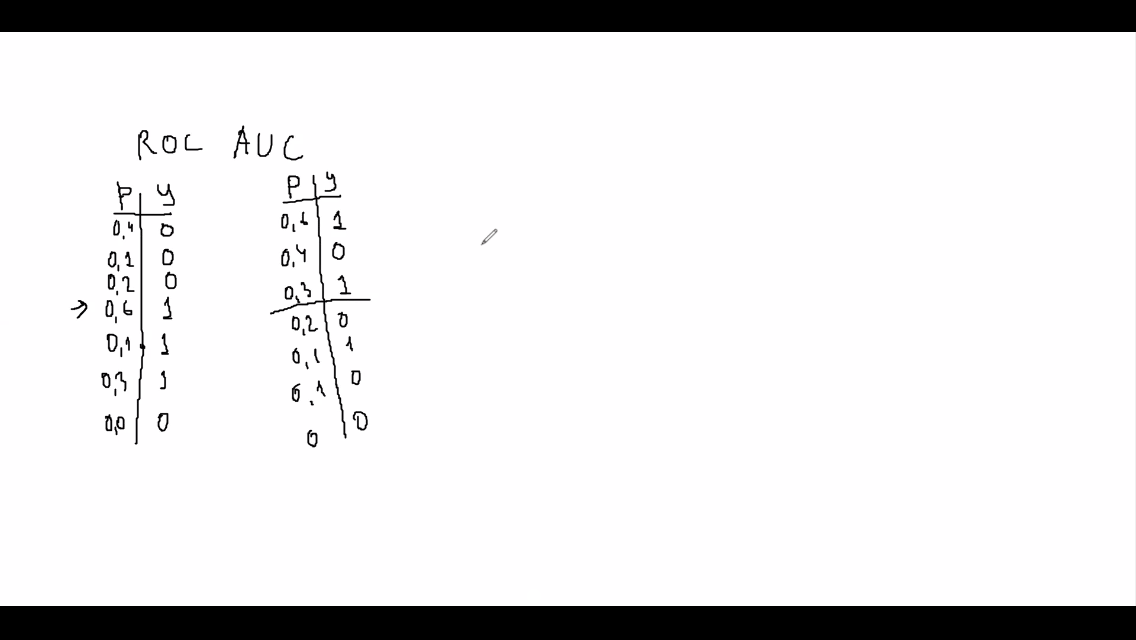 ROC AUC
P y
0,4 0
0,1 0
0,2 0
→ 0,6 1
0,1 1
0,3 1
0,0 0
P y
0,6 1
0,4 0
0,3 1
0,2 0
0,1 1
0,1 0
0 0